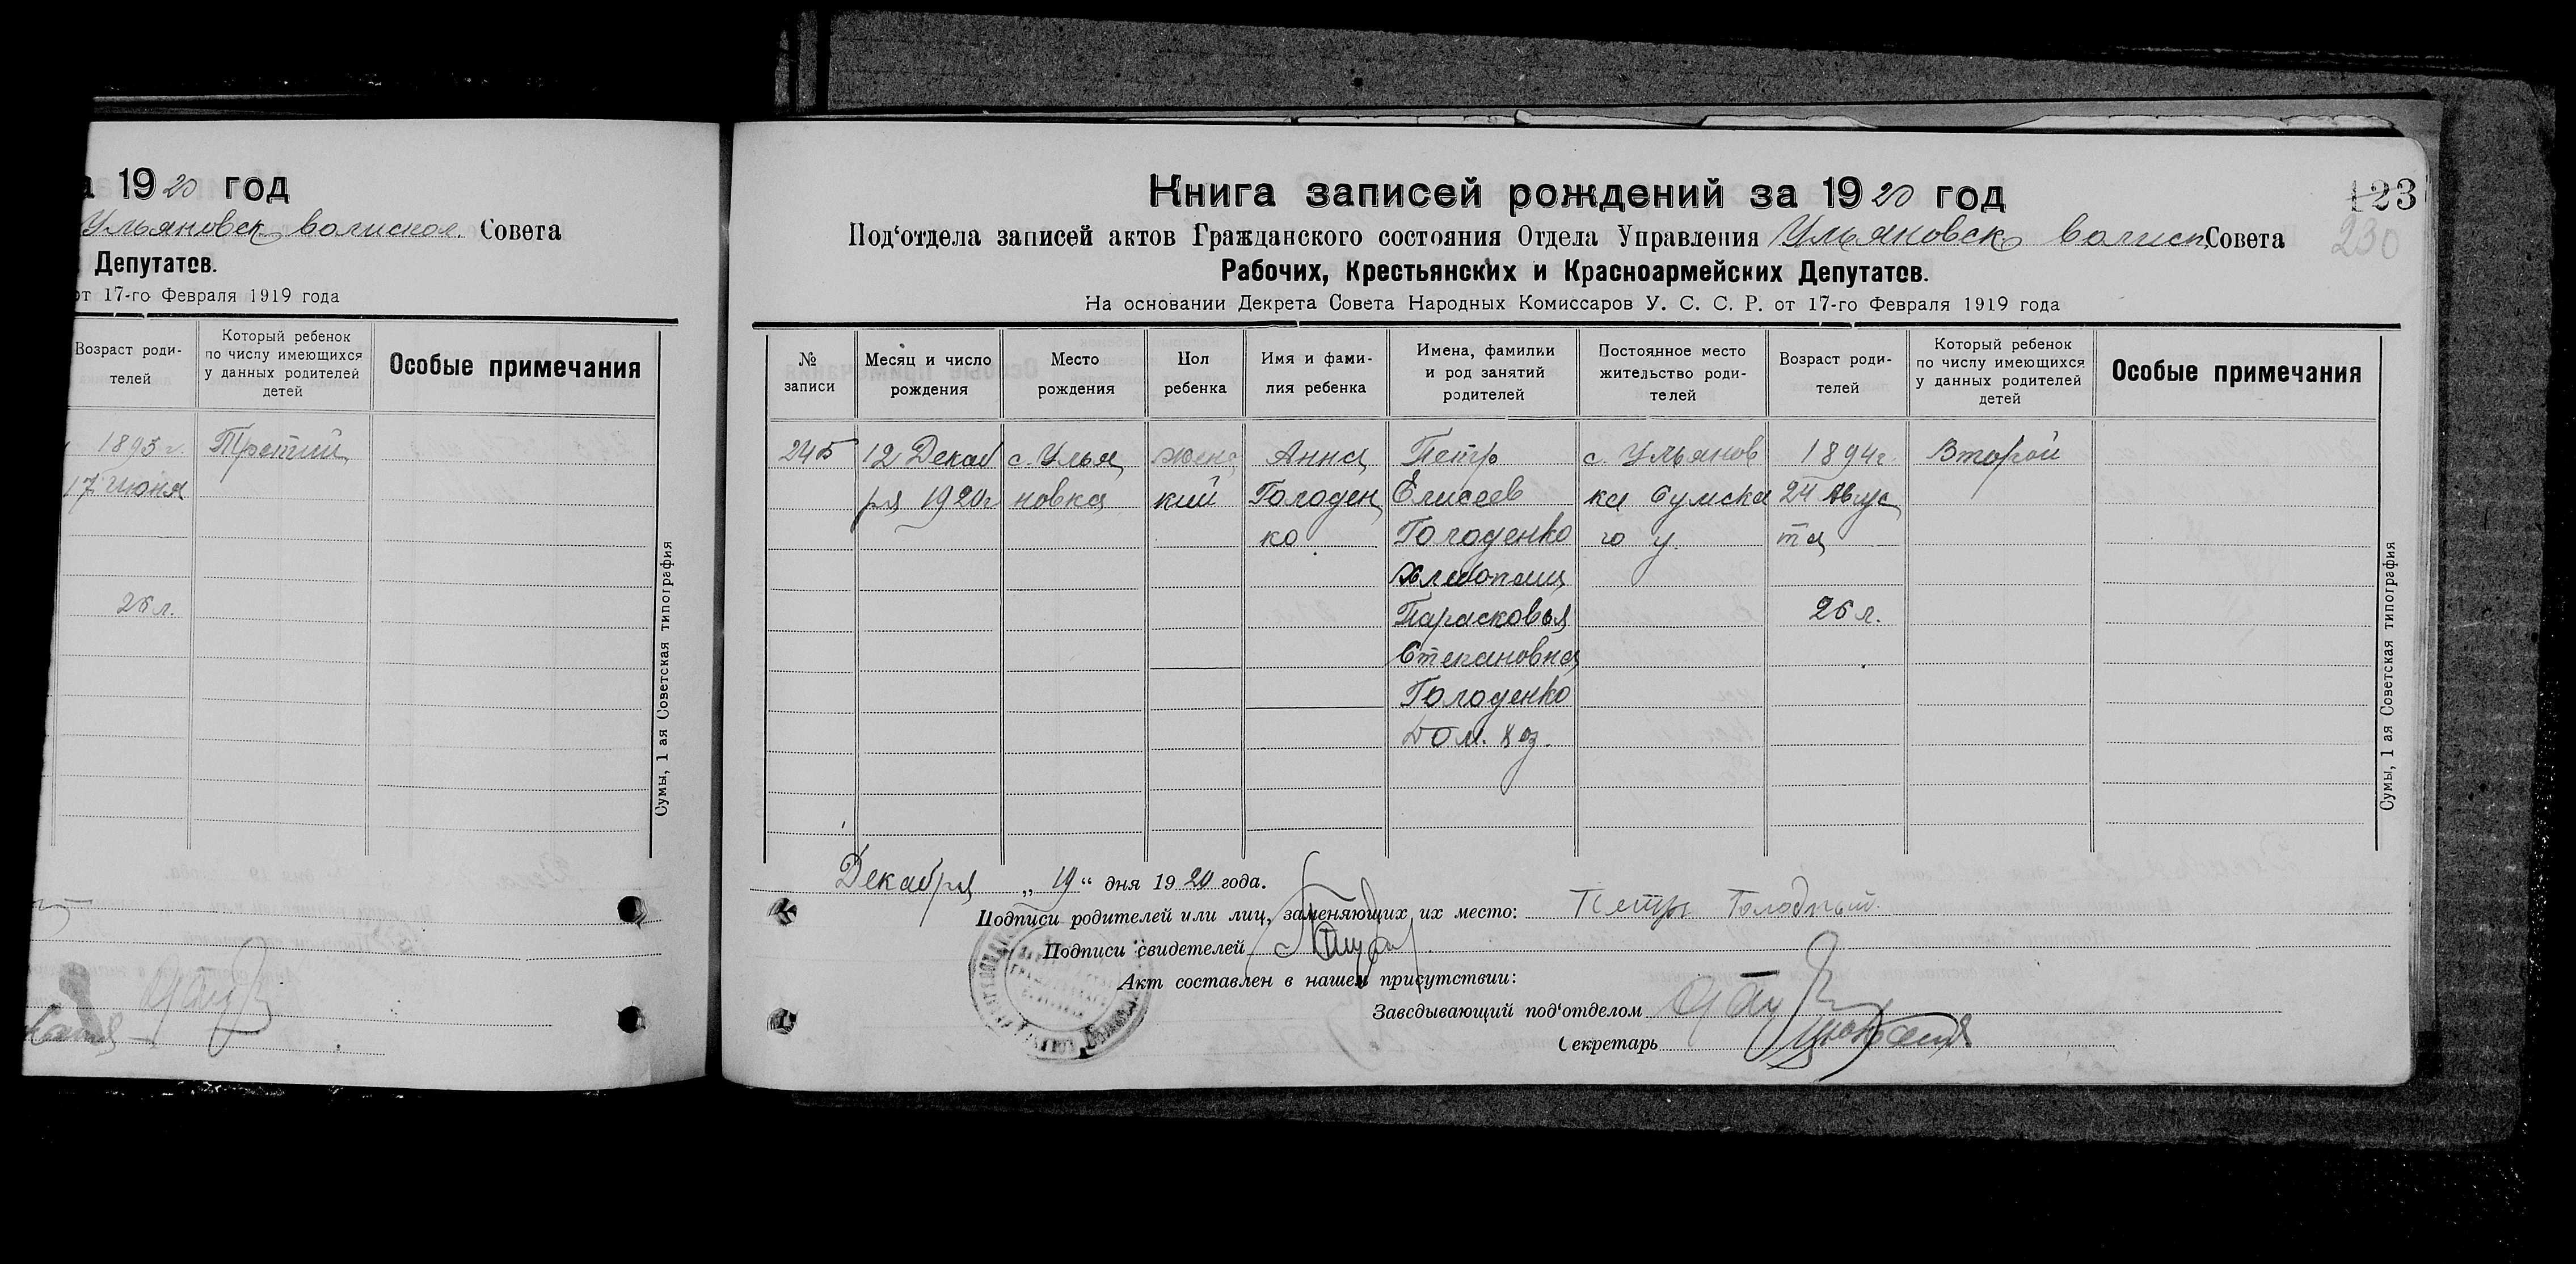 а 1920 год
Ульяновск волиспол. Совета
Депутатов.
от 17-го Февраля 1919 года
Возраст роди-
телей
Который ребенок
по числу имеющихся
у данных родителей
детей
Особые примечания
1893 г. Третий
17 июня
26 л.
Сумы, 1 ая Советская типография
Книга записей рождений за 1920 год
123
230
Под‘отдела записей актов Гражданского состояния Отдела Управления Ульяновск волисп. Совета
Рабочих, Крестьянских и Красноармейских Депутатов.
На основании Декрета Совета Народных Комиссаров У. С. С. Р. от 17-го Февраля 1919 года
№
записи
Месяц и число
рождения
Место
рождения
Пол
ребенка
Имя и фами-
лия ребенка
Имена, фамилии
и род занятий
родителей
Постоянное место
жительство роди-
телей
Возраст роди-
телей
Который ребенок
по числу имеющихся
у данных родителей
детей
Особые примечания
245 12 Декаб с. Улья женс Анна Петр с. Ульянов 1894 г Второй
ря 1920 г новка кий Голоден Елисеев ка Сумска 24 Авгус
ко Голоденко го у. та
Хлебопаш
Парасковья 26 л.
Степановна
Голоденко
Дом. хоз.
Сумы, 1 ая Советская типография
Декабря „19“ дня 1920 года.
Подписи родителей или лиц, заменяющих их место: Петр Голодный
Подписи свидетелей
Акт составлен в нашем присутствии:
Заведывающий под‘отделом
Секретарь